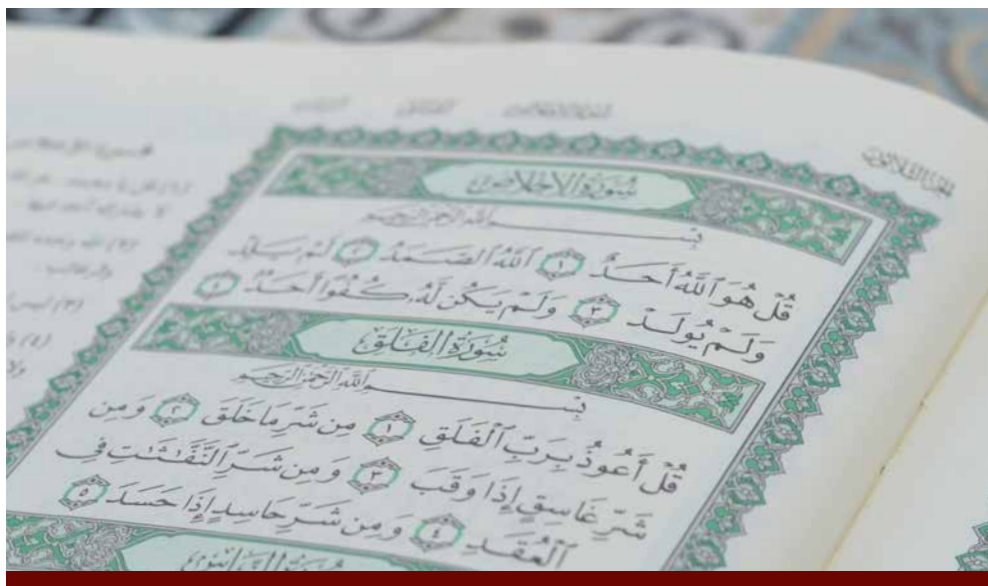 سُورَةُ الإِخْلَاصِ
بِسْمِ اللَّهِ الرَّحْمَٰنِ الرَّحِيمِ
قُلْ هُوَ ٱللَّهُ أَحَدٌ ١ ٱللَّهُ ٱلصَّمَدُ ٢ لَمْ يَلِدْ
وَلَمْ يُولَدْ ٣ وَلَمْ يَكُن لَّهُۥ كُفُوًا أَحَدٌۢ ٤
سُورَةُ الْفَلَقِ
بِسْمِ اللَّهِ الرَّحْمَٰنِ الرَّحِيمِ
قُلْ أَعُوذُ بِرَبِّ ٱلْفَلَقِ ١ مِن شَرِّ مَا خَلَقَ ٢ وَمِن
شَرِّ غَاسِقٍ إِذَا وَقَبَ ٣ وَمِن شَرِّ ٱلنَّفَّٰثَٰتِ فِى
ٱلْعُقَدِ ٤ وَمِن شَرِّ حَاسِدٍ إِذَا حَسَدَ ٥
سُورَةُ النَّاسِ